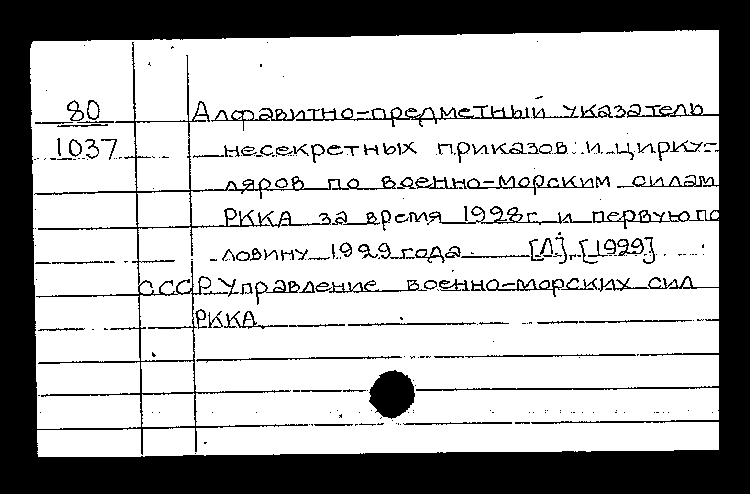 80
1037
Алфавитно-предметный указатель
несекретных приказов и цирку-
ляров по военно-морским силам
РККА за время 1928г. и первую по
ловину 1929 года. [Л], [1929]
СССР. Управление военно-морских сил
РККА